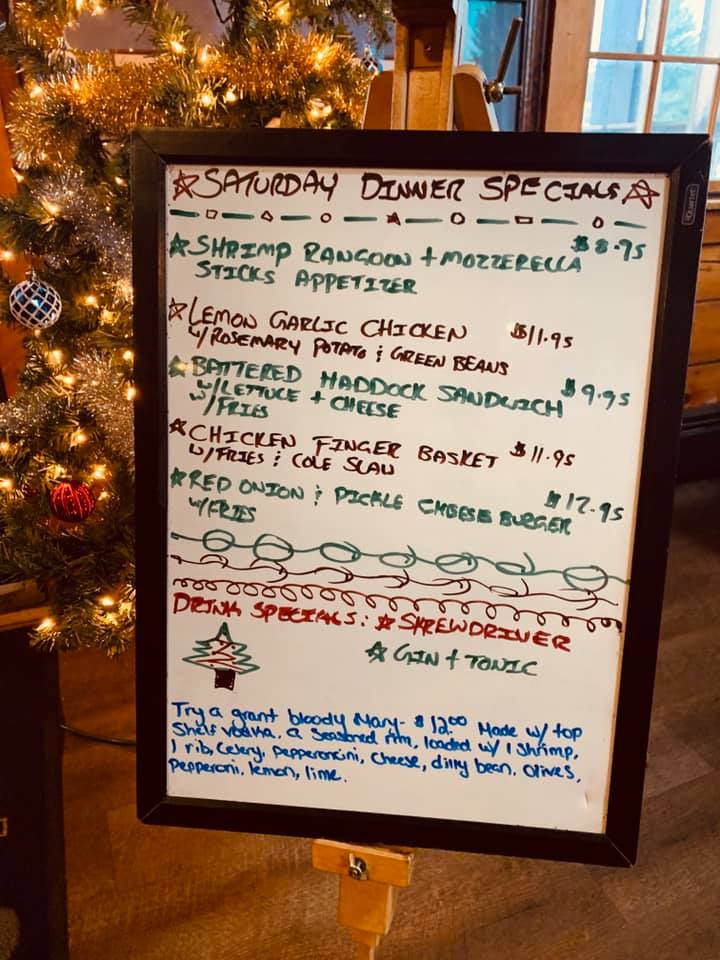 ☆SATURDAY DINNER SPECIALS☆
☆SHRIMP RANGOON + MOZZERELLA $8.95
STICKS APPETIZER
☆LEMON GARLIC CHICKEN $11.95
w/ROSEMARY POTATO & GREEN BEANS
☆BATTERED HADDOCK SANDWICH $9.95
w/LETTUCE + CHEESE
w/FRIES
☆CHICKEN FINGER BASKET $11.95
w/FRIES & COLE SLAW
☆RED ONION & PICKLE CHEESE BURGER $12.95
w/FRIES
DRINK SPECIALS: ☆SKREWDRIVER
☆GIN + TONIC
Try a grant bloody Mary- $12.00 Made w/ top
Shelf vodka. a seasoned rim, loaded w/ 1 Shrimp,
1 rib, Celery, pepperoncini, cheese, dilly bean, Olives,
Pepperoni, lemon, lime.
Quartet